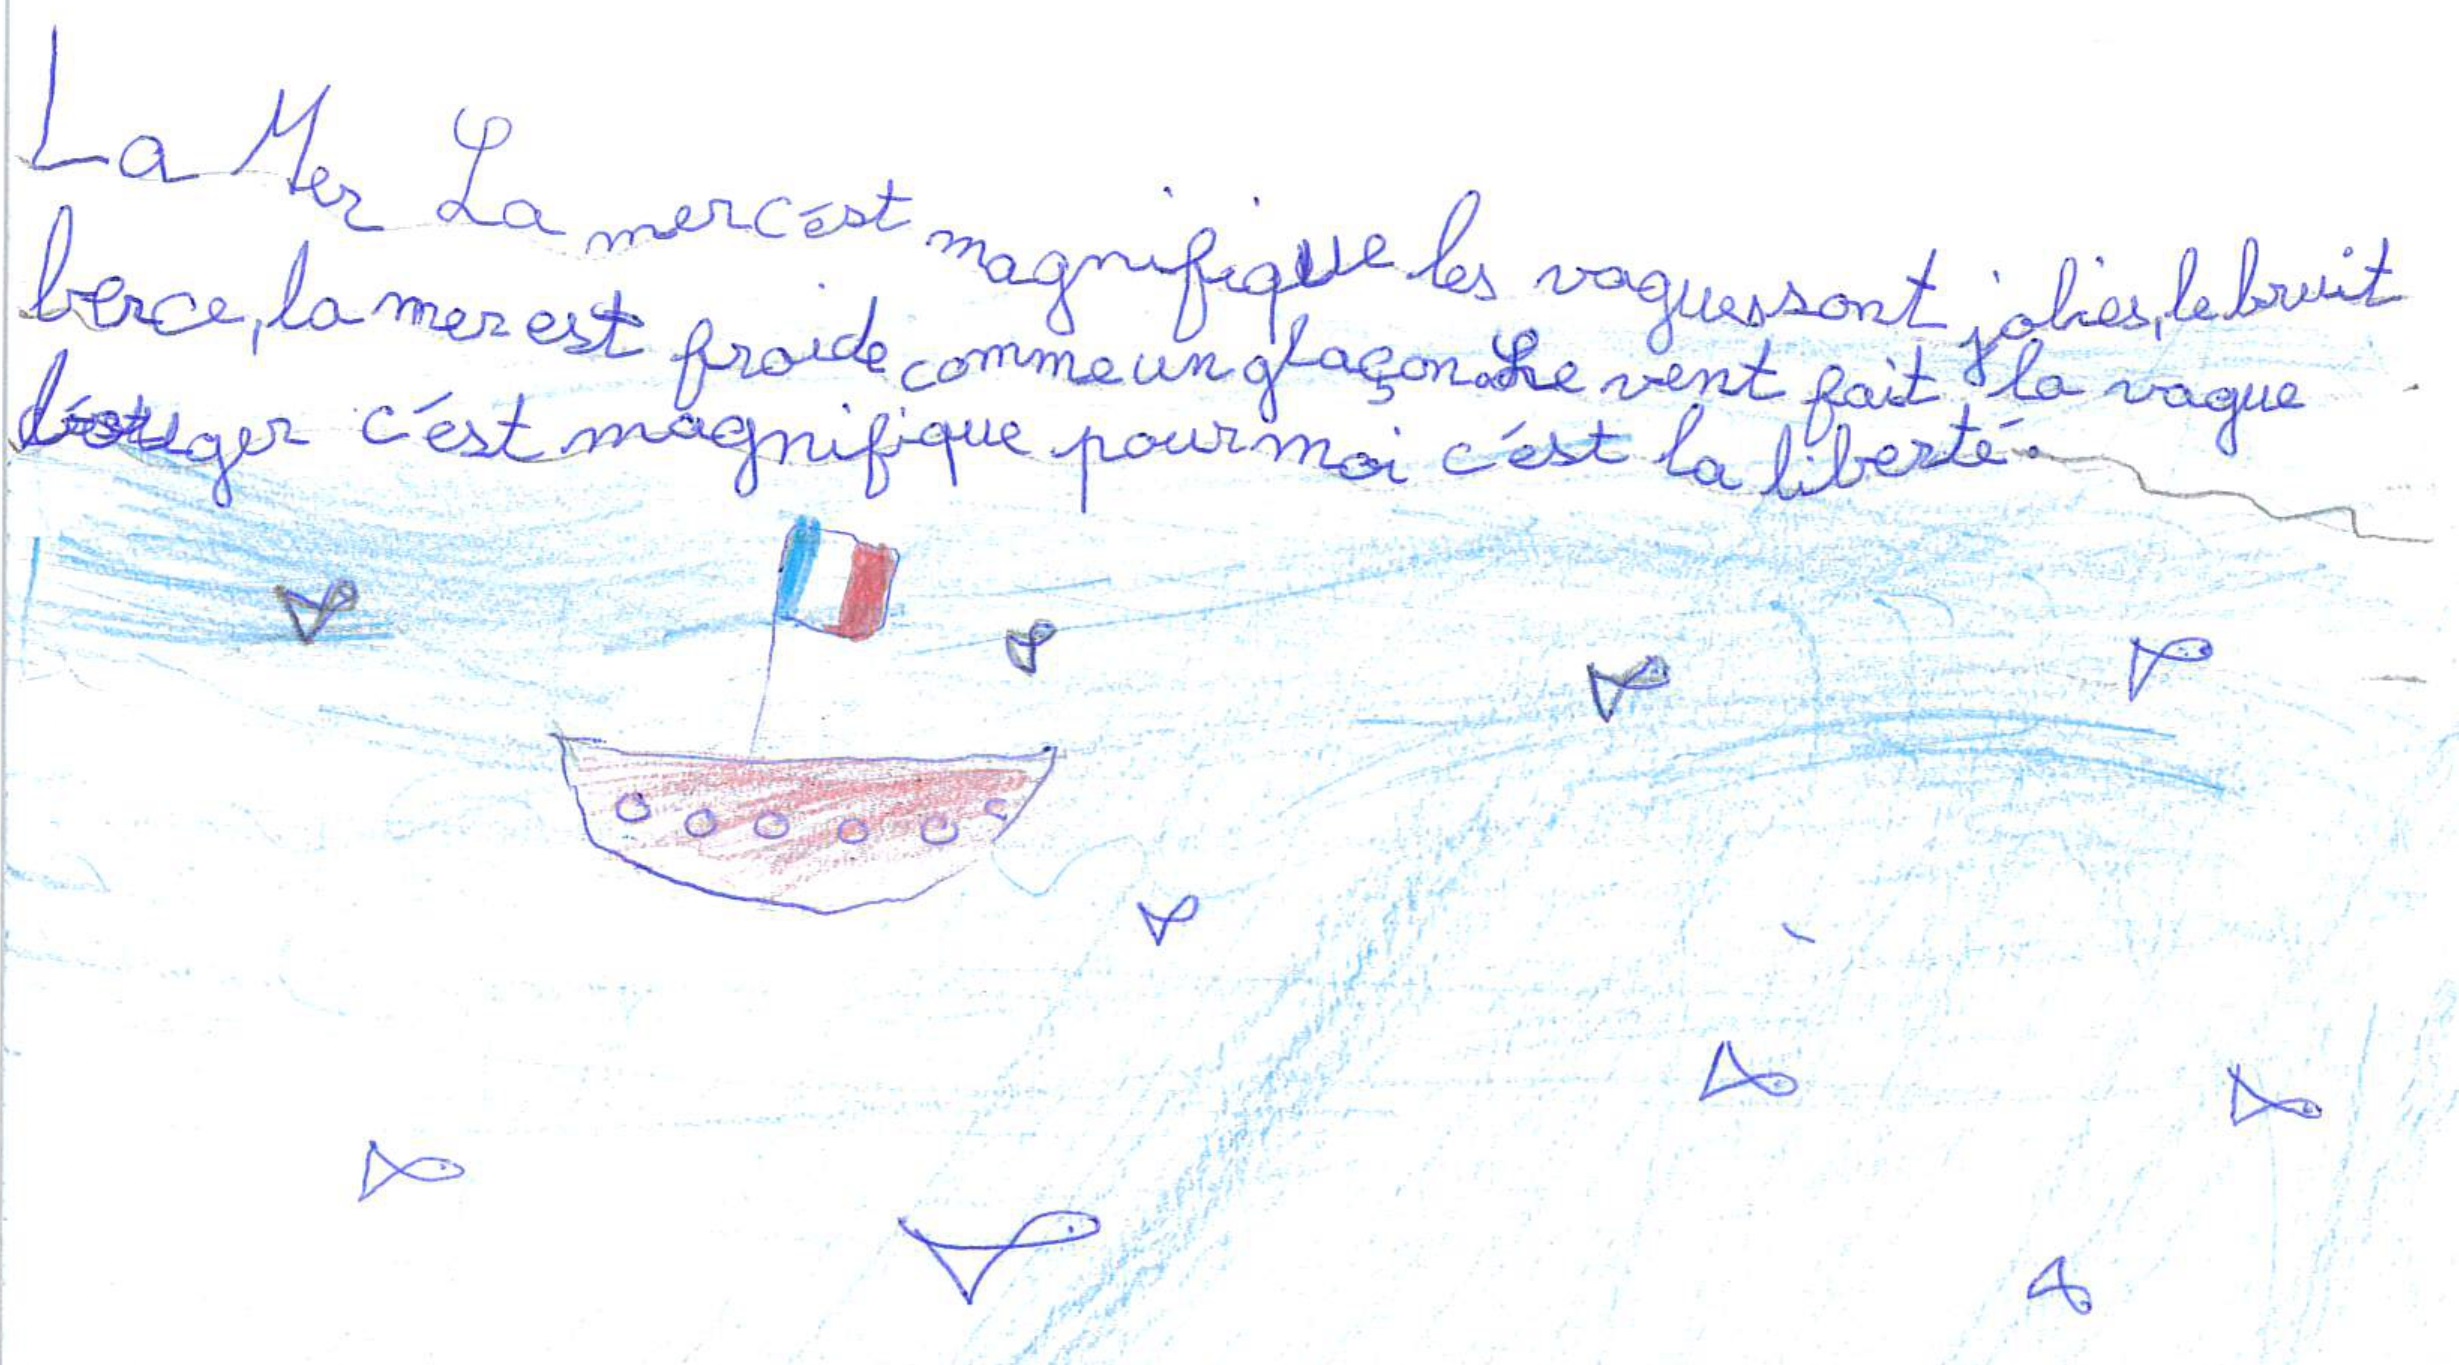 La Mer La mer c'est magnifique les vagues sont jolies, le bruit
berce, la mer est froide comme un glaçon. Le vent fait la vague
bouger c'est magnifique pour moi c'est la liberté.